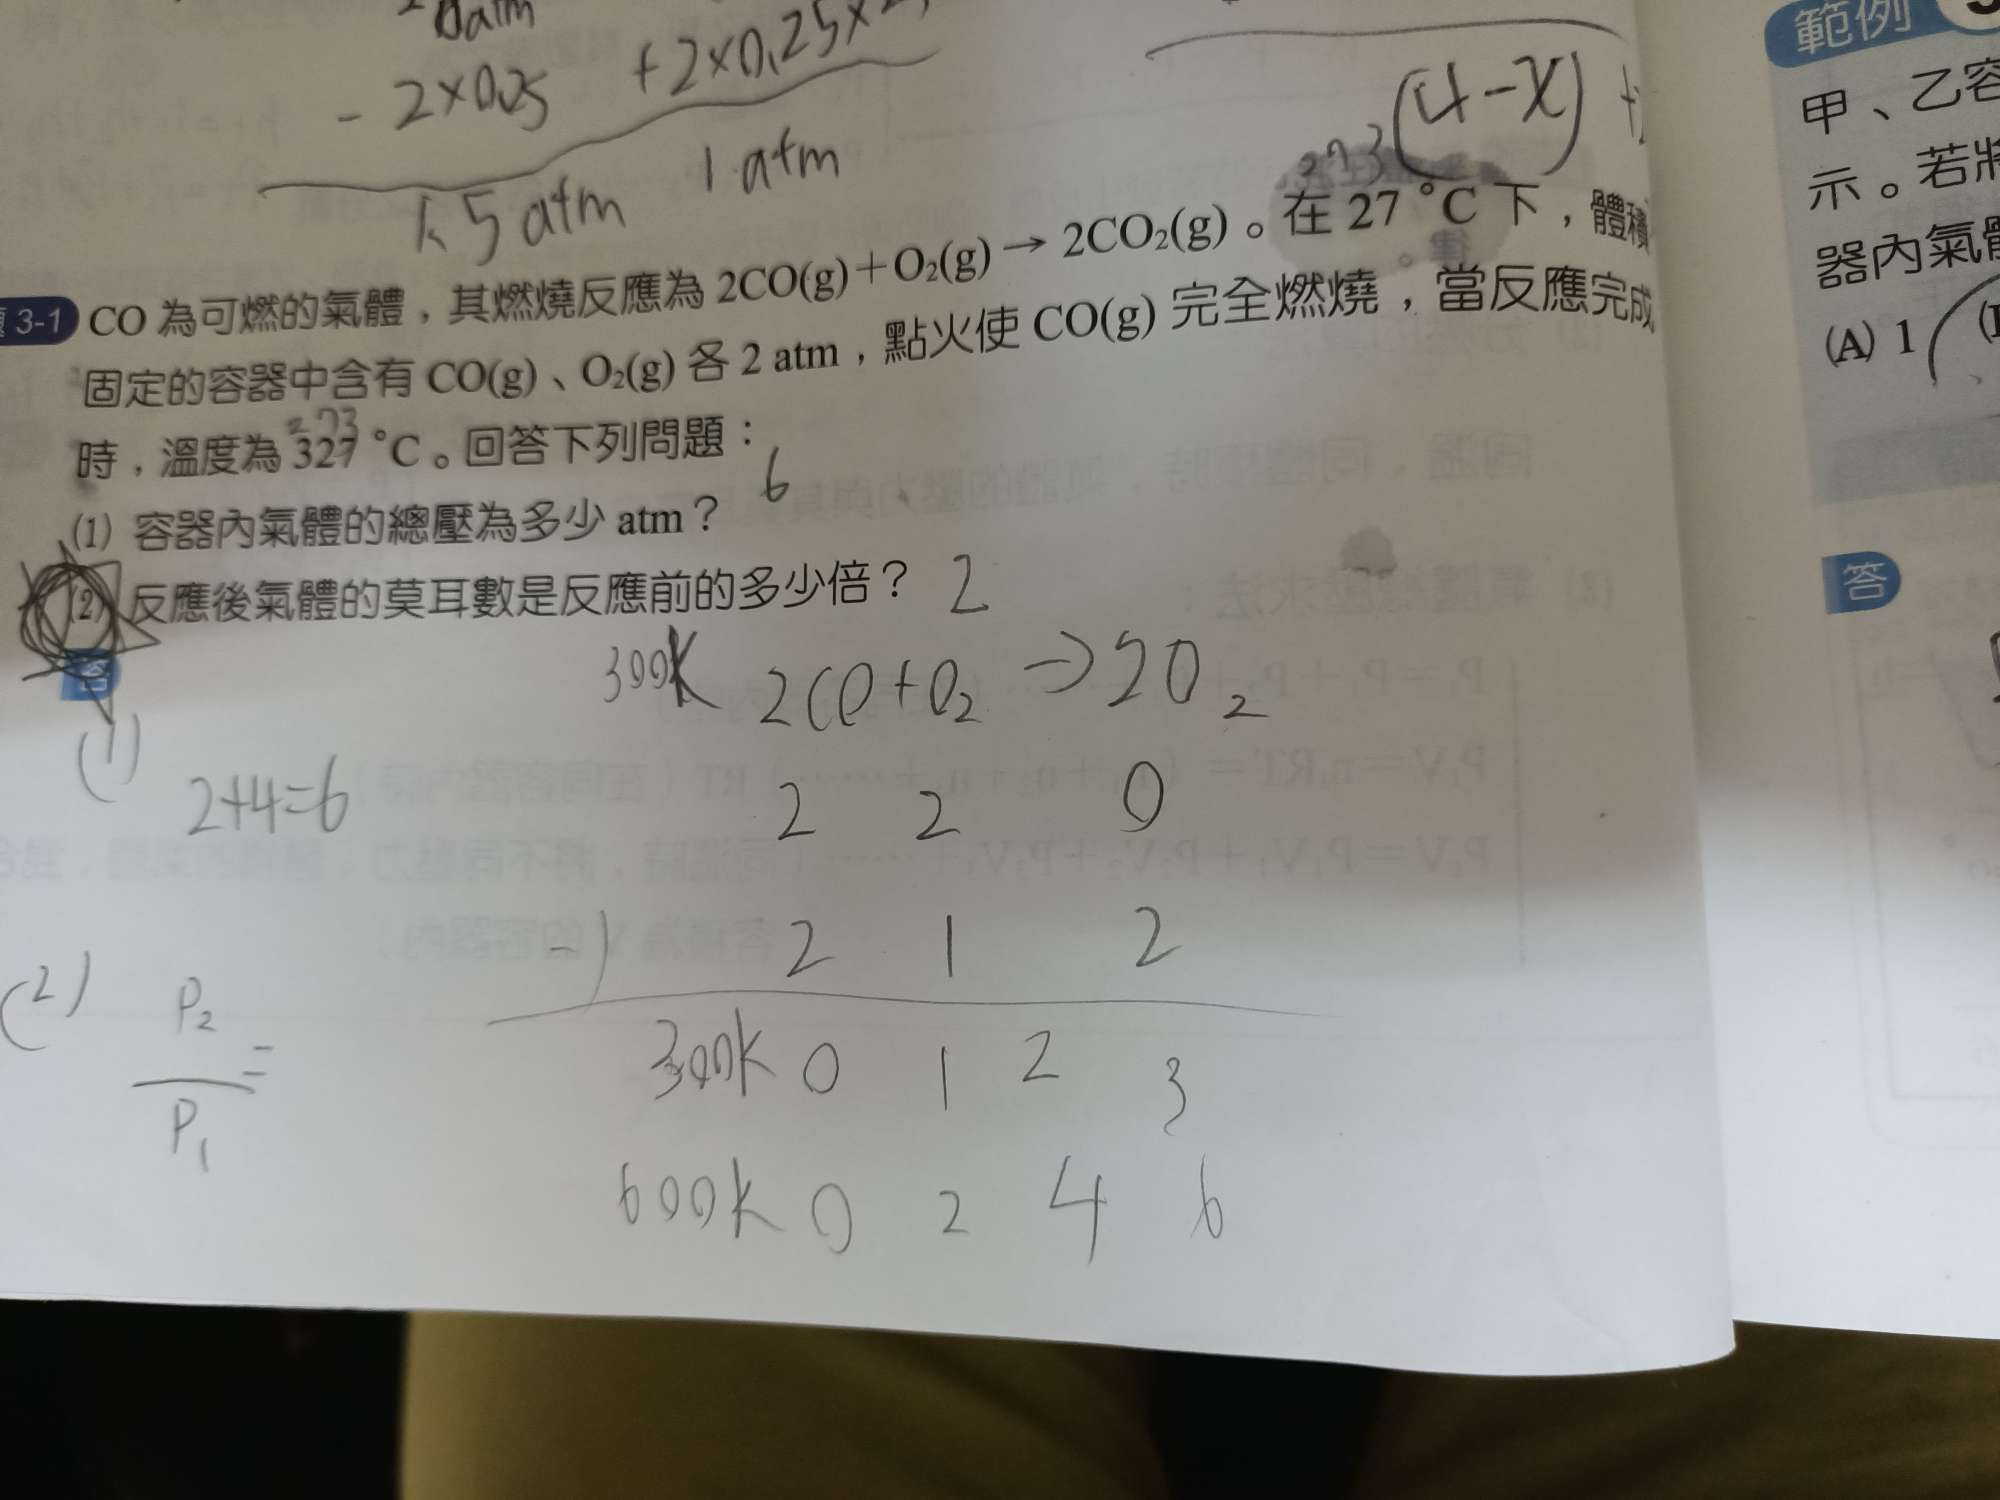 0atm
- 2×0.25 + 2×0.25×
1.5 atm 1 atm
273(4-x) +
3-1 CO 為可燃的氣體，其燃燒反應為 2CO(g)+O₂(g)→2CO₂(g)。在 27 °C 下，體積
固定的容器中含有 CO(g)、O₂(g) 各 2 atm，點火使 CO(g) 完全燃燒，當反應完成
273
時，溫度為 327 °C。回答下列問題：
(1) 容器內氣體的總壓為多少 atm？ 6
(2) 反應後氣體的莫耳數是反應前的多少倍？ 2
答
300K 2CO+O₂→2O₂
(1) 2+4=6
2 2 0
-) 2 1 2
(2) P₂/P₁ =
300K 0 1 2 3
600K 0 2 4 6
範例
甲、乙容
示。若將
器內氣體
(A) 1
答